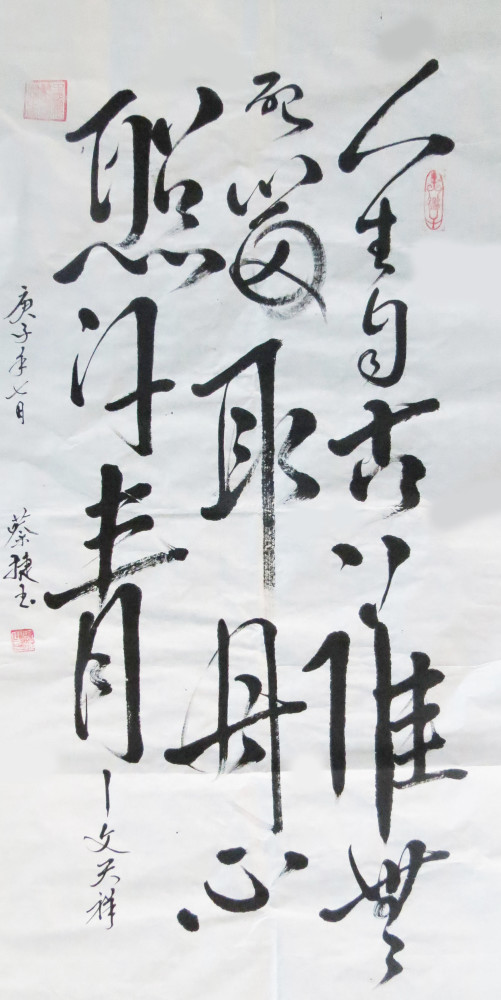 人生自古誰無
死留取丹心
照汗青
—文天祥
庚子年七月 蔡捷玉